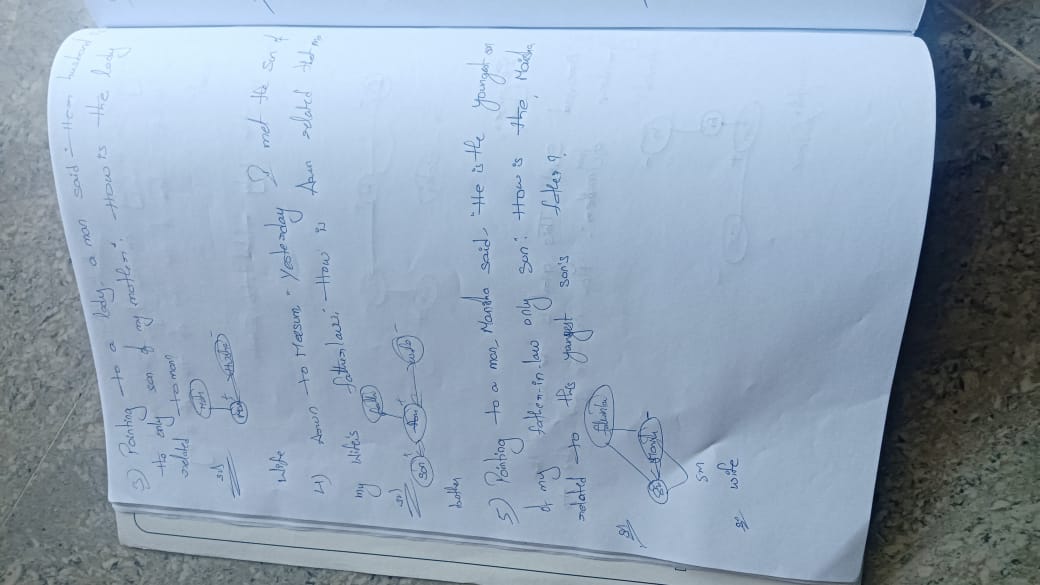 3) Pointing to a lady, a man said "Her husband
to only son of my mother". How is the lady
related to mann
sol
wife
4) Aown to Meesum "Yesterday I met the son of
my wife's father law". How is Aown related that
sol
son
brother
5) Pointing to a man, Manisha said "He is the youngest son
of my father-in-law only son". How is the, Maisha
related to this yangest son's father?
sol
son
sol wife